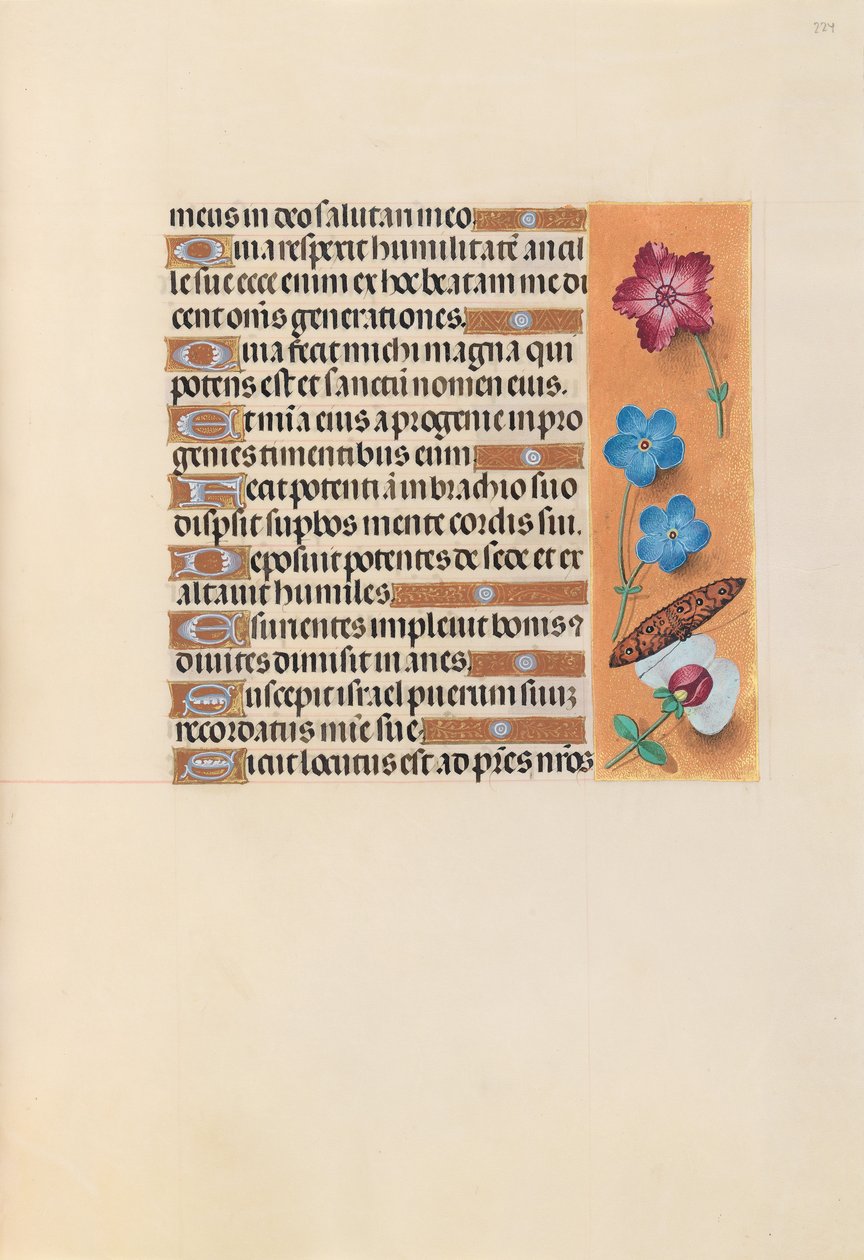 224
meus in deo salutari meo.
Quia respexit humilitatē ancil
le sue ecce enim ex hoc beatam me di
cent om̄s generationes.
Quia fecit michi magna qui
potens est et sanctū nomen eius.
Et mīa eius a progenie in pro
genies timentibus eum
Fecit potentiā in brachio suo
dispsit supbos mente cordis sui.
Deposuit potentes de sede et ex
altavit humiles
Esurientes implevit bonis ⁊
divites dimisit inanes.
Suscepit israel puerum suuꝫ
recordatus mīe sue.
Sicut locutus est ad pr̄es nr̄os